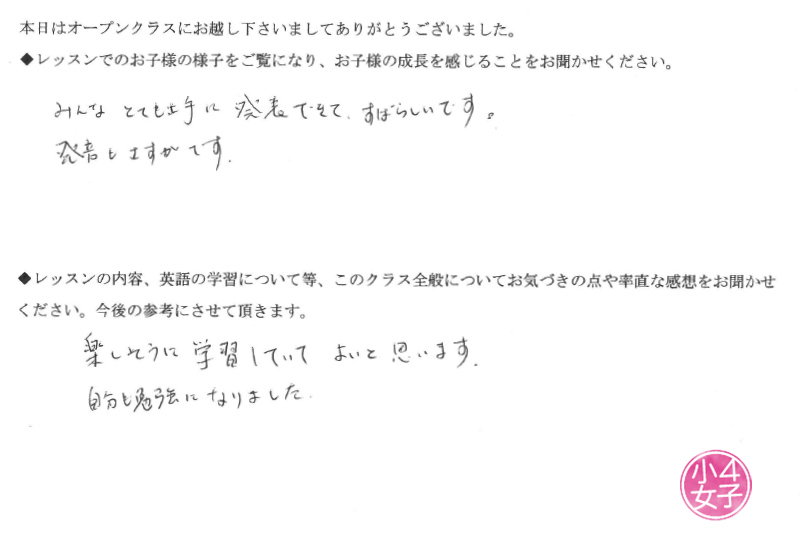 本日はオープンクラスにお越し下さいましてありがとうございました。
◆レッスンでのお子様の様子をご覧になり、お子様の成長を感じることをお聞かせください。
みんな とても上手に 発表できて、すばらしいです。
発音もさすがです.
◆レッスンの内容、英語の学習について等、このクラス全般についてお気づきの点や率直な感想をお聞かせ
ください。今後の参考にさせて頂きます。
楽しそうに 学習していて よいと 思います.
自分も勉強になりました.
小4
女子